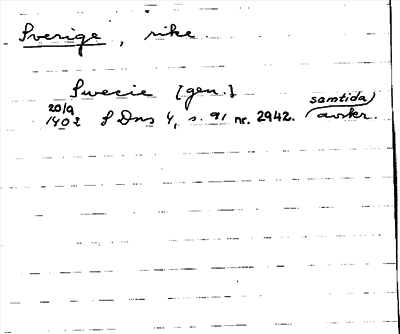 Sverige, rike
Swecie [gen.]
20/9 samtida
1402 SDns 4, s. 91 nr. 2942. (avskr.)